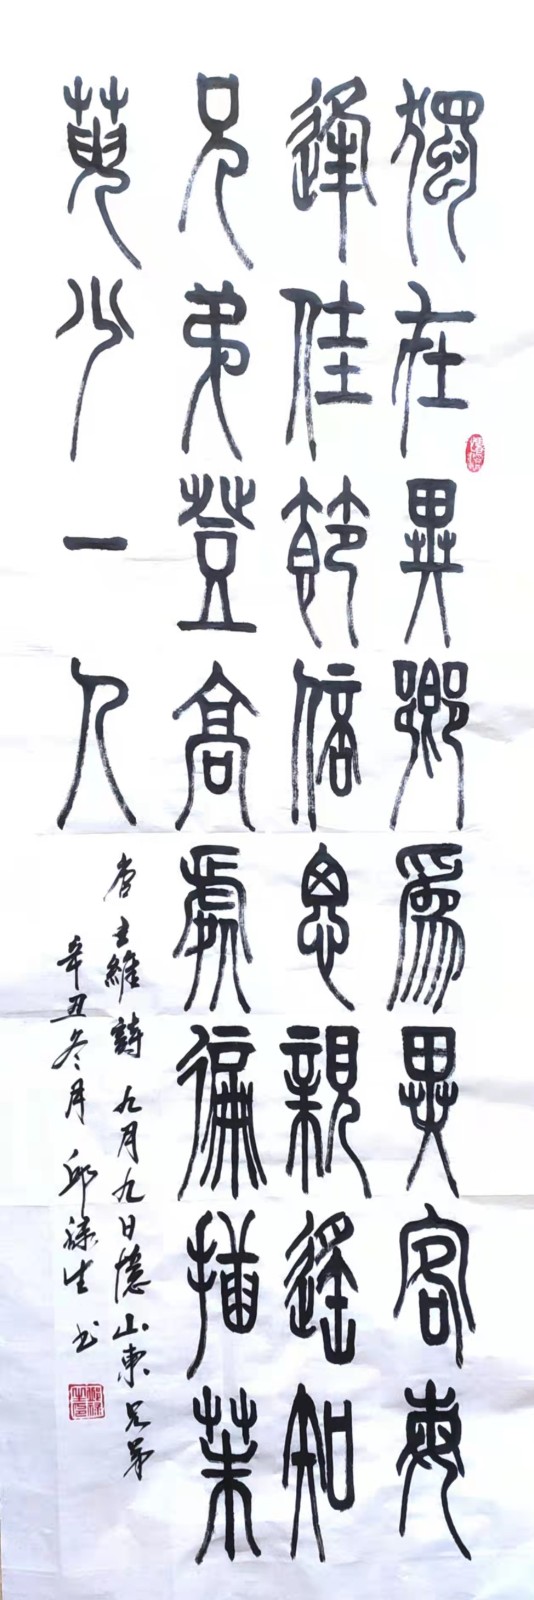 獨在異鄉為異客每
逢佳節倍思親遙知
兄弟登高處徧插茱
萸少一人
唐王維詩 九月九日憶山東兄弟
辛丑冬月 邱祿生書